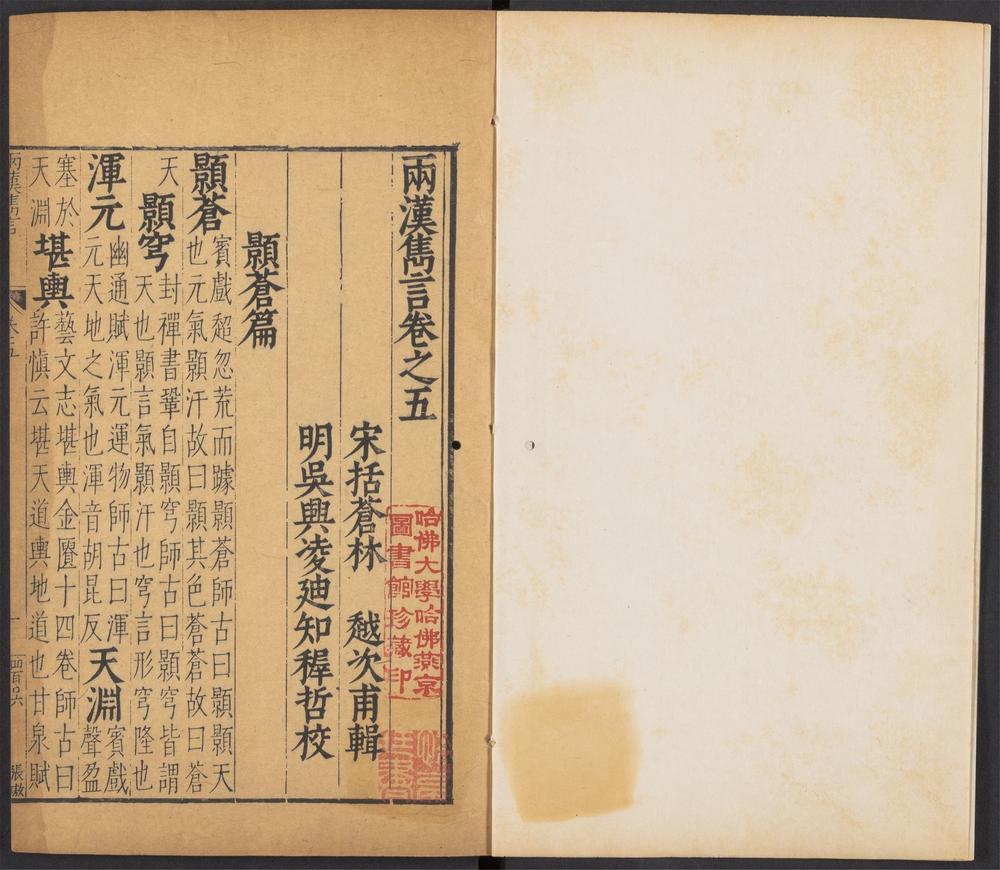 兩漢雋言卷之五
宋括蒼林　越次甫輯
明吳興凌迪知穉哲校
顥蒼篇
顥蒼
賓戲超忽荒而躆顥蒼師古曰顥顥天
也元氣顥汗故曰顥其色蒼蒼故曰蒼
天
顥穹
封禪書肇自顥穹師古曰顥穹皆謂
天也顥言氣顥汗也穹言形穹隆也
渾元
幽通賦渾元運物師古曰渾
元天地之氣也渾音胡昆反
天淵
賓戲
聲盈
塞於
天淵
堪輿
藝文志堪輿金匱十四卷師古曰
許慎云堪天道輿地道也甘泉賦
兩漢雋言
卷五
一
哈佛大學哈佛燕京
圖書館珍藏印